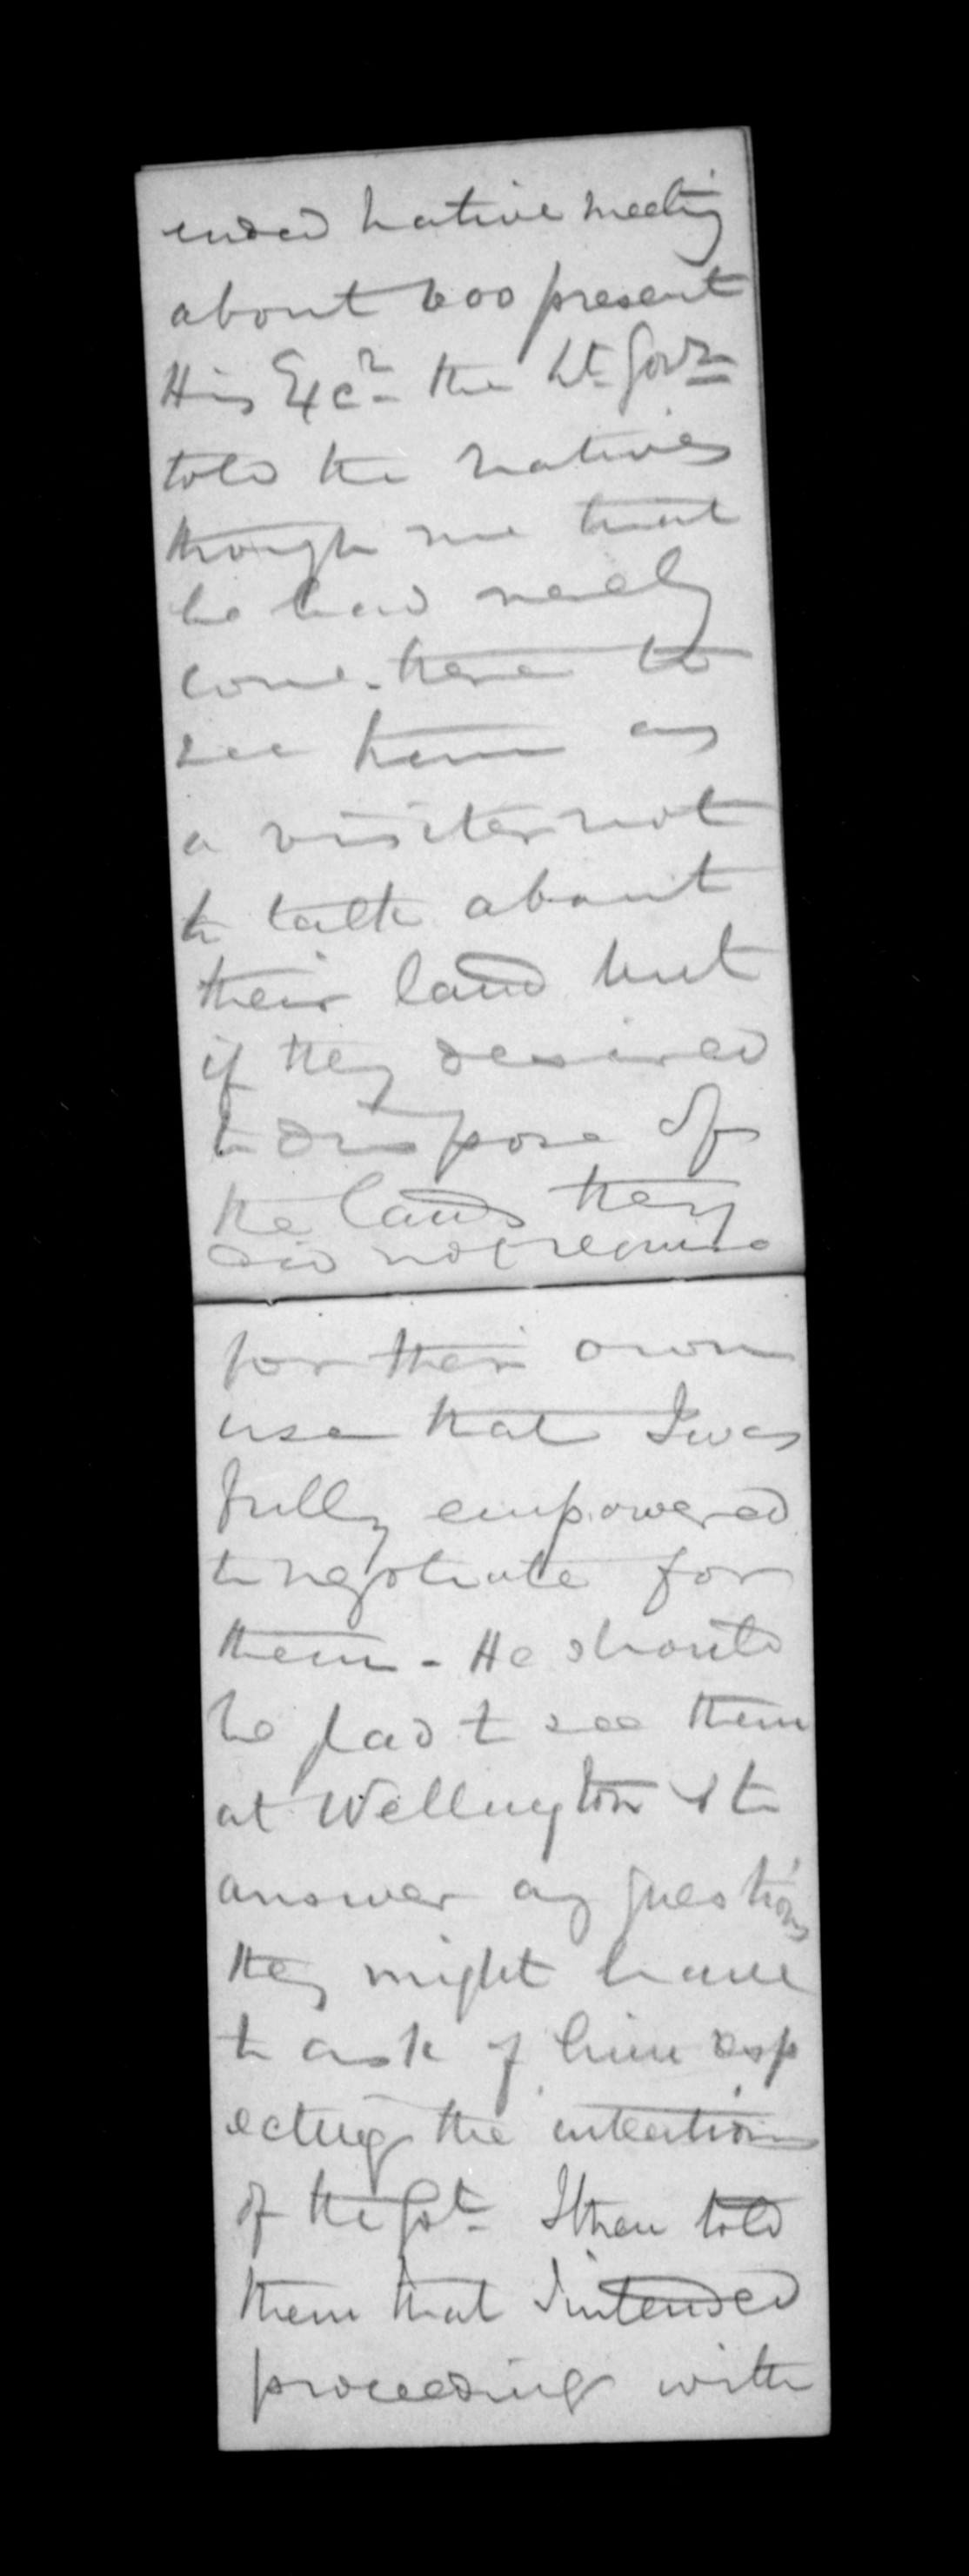 ended Native meeting
about 600 present
His Excy. the Lt. Govr.
told the natives
through me that
he had merely
come here to
see them as
a visiter not
to talk about
their land but
if they desired
to dispose of
the lands they
did not require
for their own
use that I was
fully empowered
to negotiate for
them - He should
be glad to see them
at Wellington & to
answer any questions
they might have
to ask of him resp
ecting the intentions
of the Govt. I then told
them that I intended
proceeding with